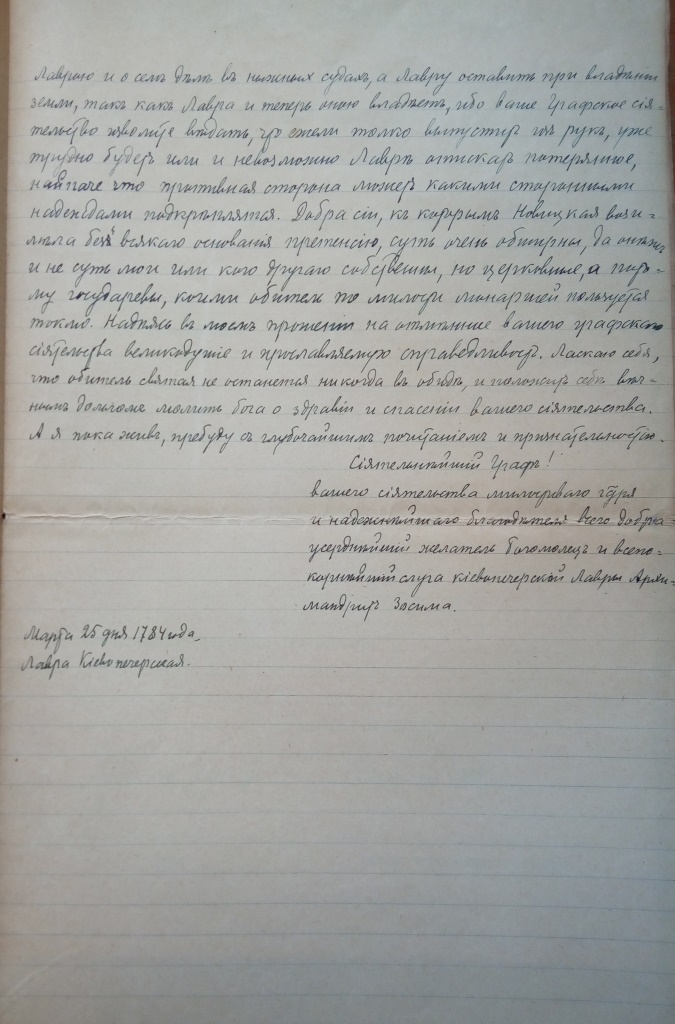 Лаврою и о семъ дѣлѣ въ нижнихъ судахъ, а Лавру оставить при владѣніи
земли, такъ какъ Лавра и теперь оною владѣетъ, ибо ваше Графское сія-
тельство изволите вѣдать, что ежели только выпустить изъ рукъ, уже
трудно будетъ или и невозможно Лаврѣ отискать потерянное,
наипаче что противная сторона можетъ какими сторонними
надеждами подкрѣплятся. Добра сіи, къ которымъ Новицкая возъи-
мѣла безъ всякаго основанія претенсію, суть очень обширны, да они
и не суть мои или кого другаго собственны, но церковные, а пото-
му государевы, коими обитель по милости монаршей пользуется
токмо. Надѣясь въ моемъ прошеніи на отмѣнное вашего графскаго
сіятельства великодушіе и прославляемую справедливость. Ласкаю себя,
что обитель святая не останется никогда въ обидѣ, и положитъ себѣ вѣч-
нымъ долгомъ молить бога о здравіи и спасеніи вашего сіятельства.
А я пока живъ, пребуду съ глубочайшимъ почитаніемъ и признательностію.
Сіятельнѣйшій Графъ!
вашего сіятельства милостиваго гдря
и надежнѣйшаго благодѣтеля всего добра
усерднѣйшій желатель богомолецъ и всепо-
корнѣйшій слуга кіевопечерской Лавры Архи-
мандритъ Зосима.
Марта 25 дня 1784 года.
Лавра Кіевопечерская.